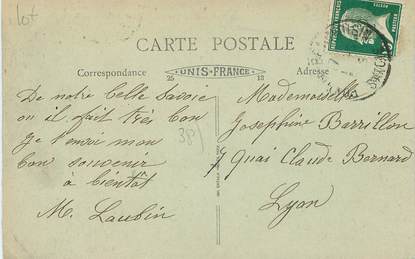 lot
CARTE POSTALE
Correspondance
UNIS-FRANCE
Adresse
De notre belle Savoie
ou il fait très bon
je t'envoi mon
bon souvenir
à bientôt
M. Laubin
Mademoiselle
Josephine Barrillon
Quai Claude Bernard
Lyon